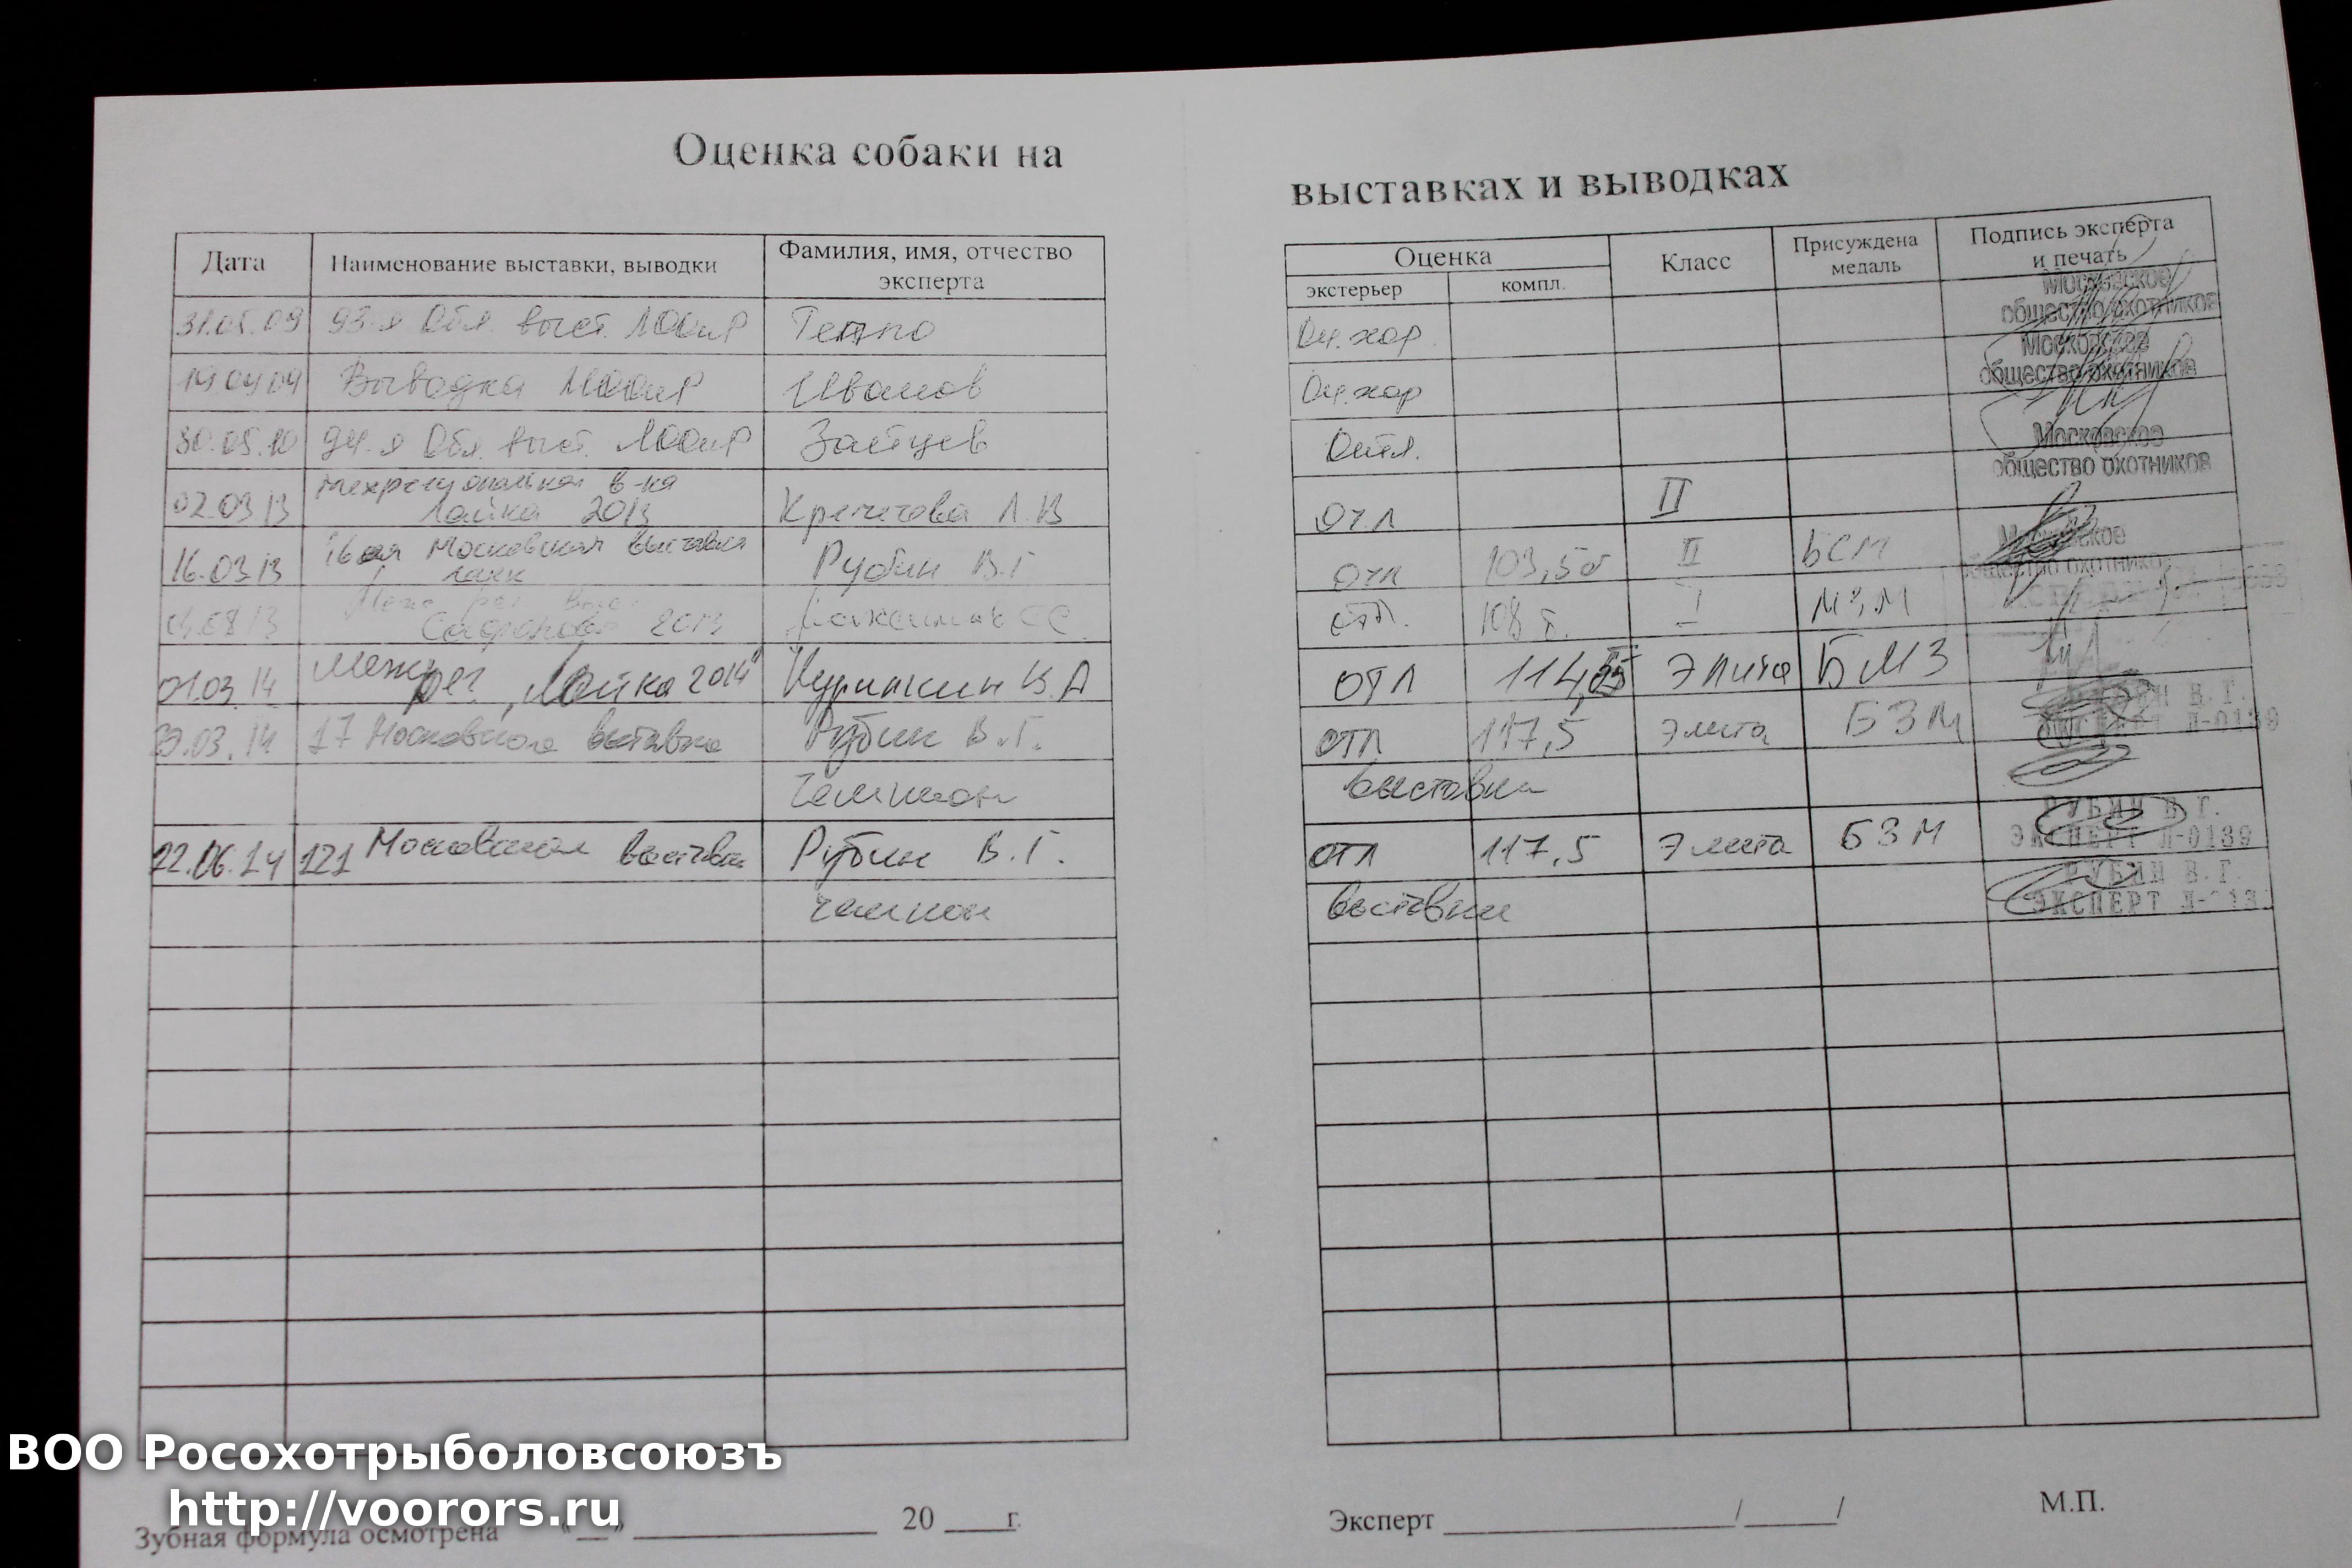 Оценка собаки на выставках и выводках
Дата Наименование выставки, выводки Фамилия, имя, отчество эксперта Оценка экстерьер компл. Класс Присуждена медаль Подпись эксперта и печать
31.05.09 93-я Обл. выст. МООиР Оч.хор Московское общество охотников
19.04.09 Выводка МООиР Иванов Оч.хор Московское общество охотников
30.05.10 94-я Обл. выст. МООиР Зайцев Отл. Московское общество охотников
02.03 13 Межрегиональная в-ка Лайка 2013 Л.В Отл II
16.03 13 16ая Московская выставка лаек Рубин В.Г Отл 103,5б II БСМ Московское общество охотников
08 13 2013 отл. 108 б. I МЗМ
01.03.14 Межрег. „Лайка 2014" В А отл Элита БМЗ
03.14 17 Московская выставка Рубин В.Г. отл 117,5 элита БЗМ РУБИН В.Г. ЭКСПЕРТ Л-0139
Чемпион выставки
22.06.14 121 Московская выставка Рубин В.Г. отл 117,5 Элита БЗМ РУБИН В.Г. ЭКСПЕРТ Л-0139
чемпион выставки РУБИН В.Г. ЭКСПЕРТ
ВОО Росохотрыболовсоюзъ
http://voorors.ru
Зубная формула осмотрена "__" ____________ 20 ____г. Эксперт ____________/_____/ М.П.